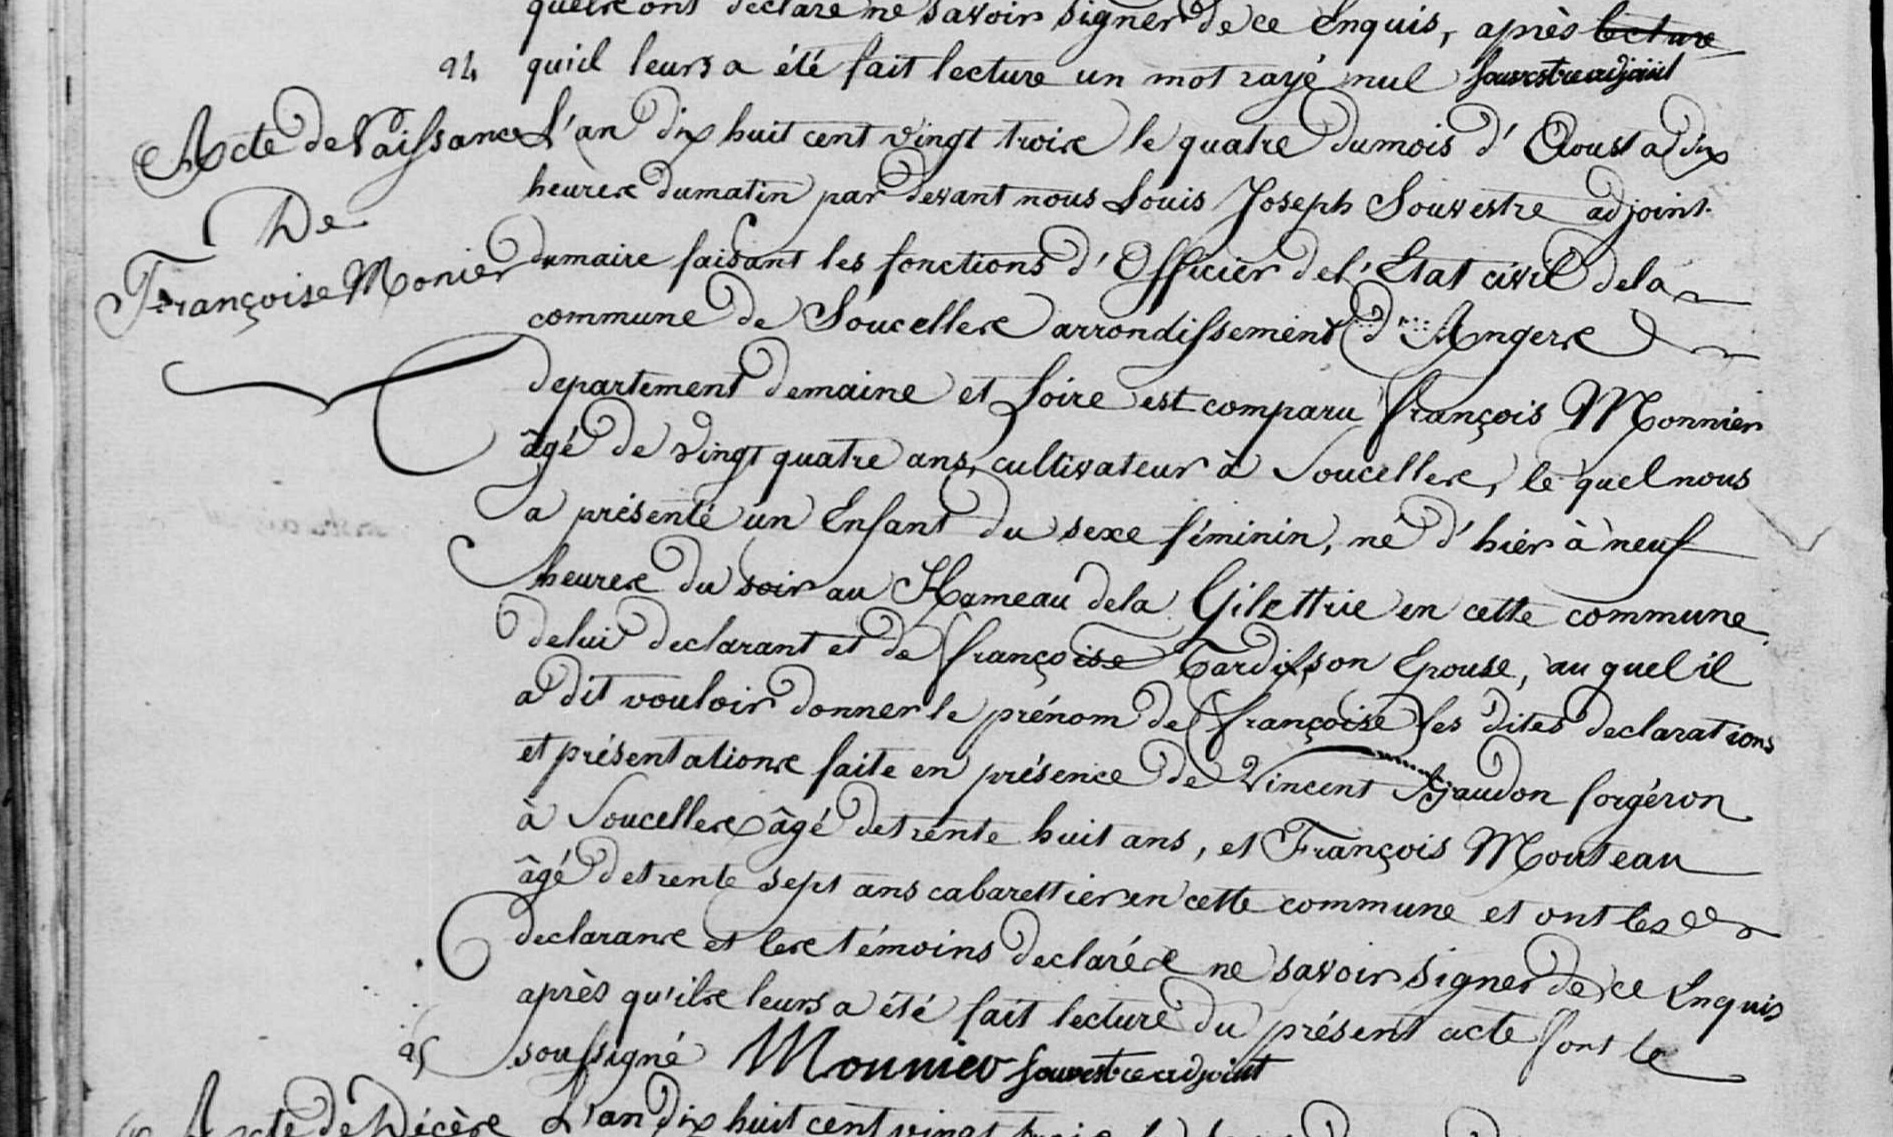 quelle ont declaré ne savoir signer de ce Enquis, après lecture
94 qu'il leurs a été fait lecture un mot rayé nul Souvestre adjoint
Acte de Naissance
De
Françoise Monier
L'an dix huit cent vingt trois le quatre du mois d'Aoust a dix
heures du matin par devant nous Louis Joseph Souvestre adjoint
du maire faisant les fonctions d'Officier de l'Etat civil de la
commune de Soucelles arrondissement d'Angers
departement de maine et Loire est comparu françois Monnier
âgé de vingt quatre ans, cultivateur à Soucelles, le quel nous
a présenté un Enfant du sexe féminin, né d'hier à neuf
heures du soir au Hameau de la Gilettrie en cette commune
de lui declarant et de françoise Tardif, son Epouse, au quel il
a dit vouloir donner le prénom de françoise les dites declarations
et présentations faite en présence de Vincent Gaudon forgéron
à Soucelles âgé de trente huit ans, et François Monteau
âgé de trente sept ans cabarettier en cette commune et ont les
declarans et les témoins declarés ne savoir signer de ce Enquis
après qu'ils leurs a été fait lecture du présent acte font le
soussigné Mounier Souvestre adjoint
95
Acte de Décès
L'an dix huit cent vingt trois le